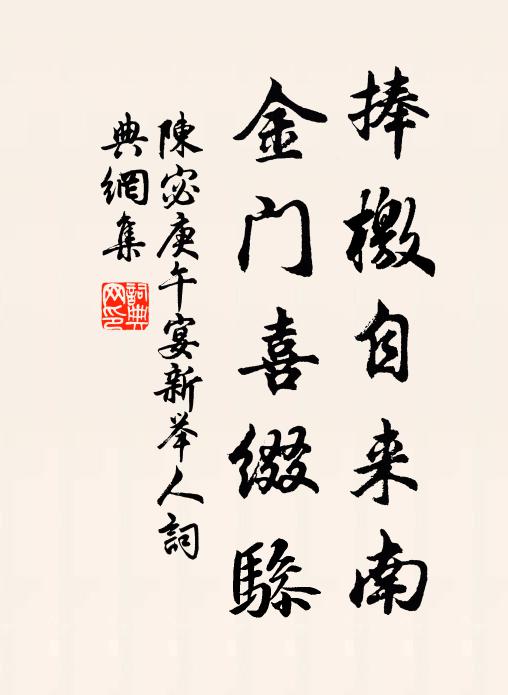 捧檄自来南
金门喜缀驂
陳宓庚午宴新举人詞
典網集
詞典网印